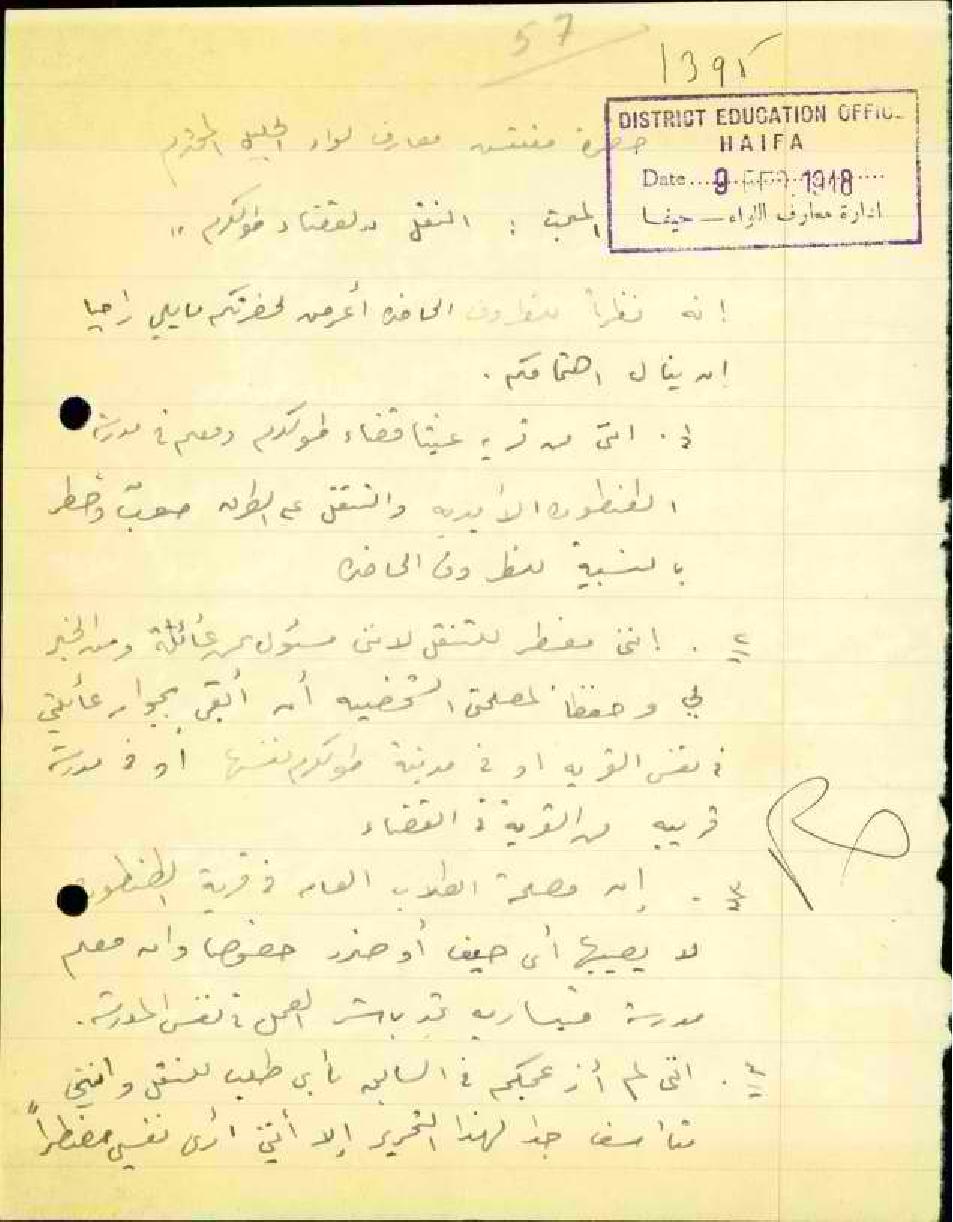 57
1395
DISTRICT EDUCATION OFFIC
HAIFA
Date 9 FEB 1948
ادارة معارف اللواء — حيفا
حضرة مفتش معارف لواء الجليل المحترم
المبحث : النقل لقضاء طولكرم "
إنه نظراً للظروف الحاضره أعرض لحضرتكم مايلي راجيا
ان ينال اهتمامكم .
انني من قريه عنبتا قضاء طولكرم ومعلم في مدرسة
الطنطوره الأميريه والتنقل على الطرق صعب وخطر
بالنسبة للظروف الحاضره
٢ . إنني مضطر للتنقل لانني مسئول عن عائلة ومن الخير
لي وحفظا لمصلحتي الشخصيه أن أبقى بجوار عائلتي
في نفس القريه او في مدينة طولكرم نفسها أو في مدرسة
قريبه من القرية في القضاء
٣ . إن مصلحة الطلاب العامه في قرية الطنطوره
لا يصيبها أي حيف أو ضرر خصوصا وان معلم
مدرسة قيساريه قد باشر العمل في نفس المدرسة .
٤ . انني لم أزعجكم في السابق بأي طلب للنقل وانني
متأسف جدا لهذا التحرير إلا أنني ارى نفسي مضطراً